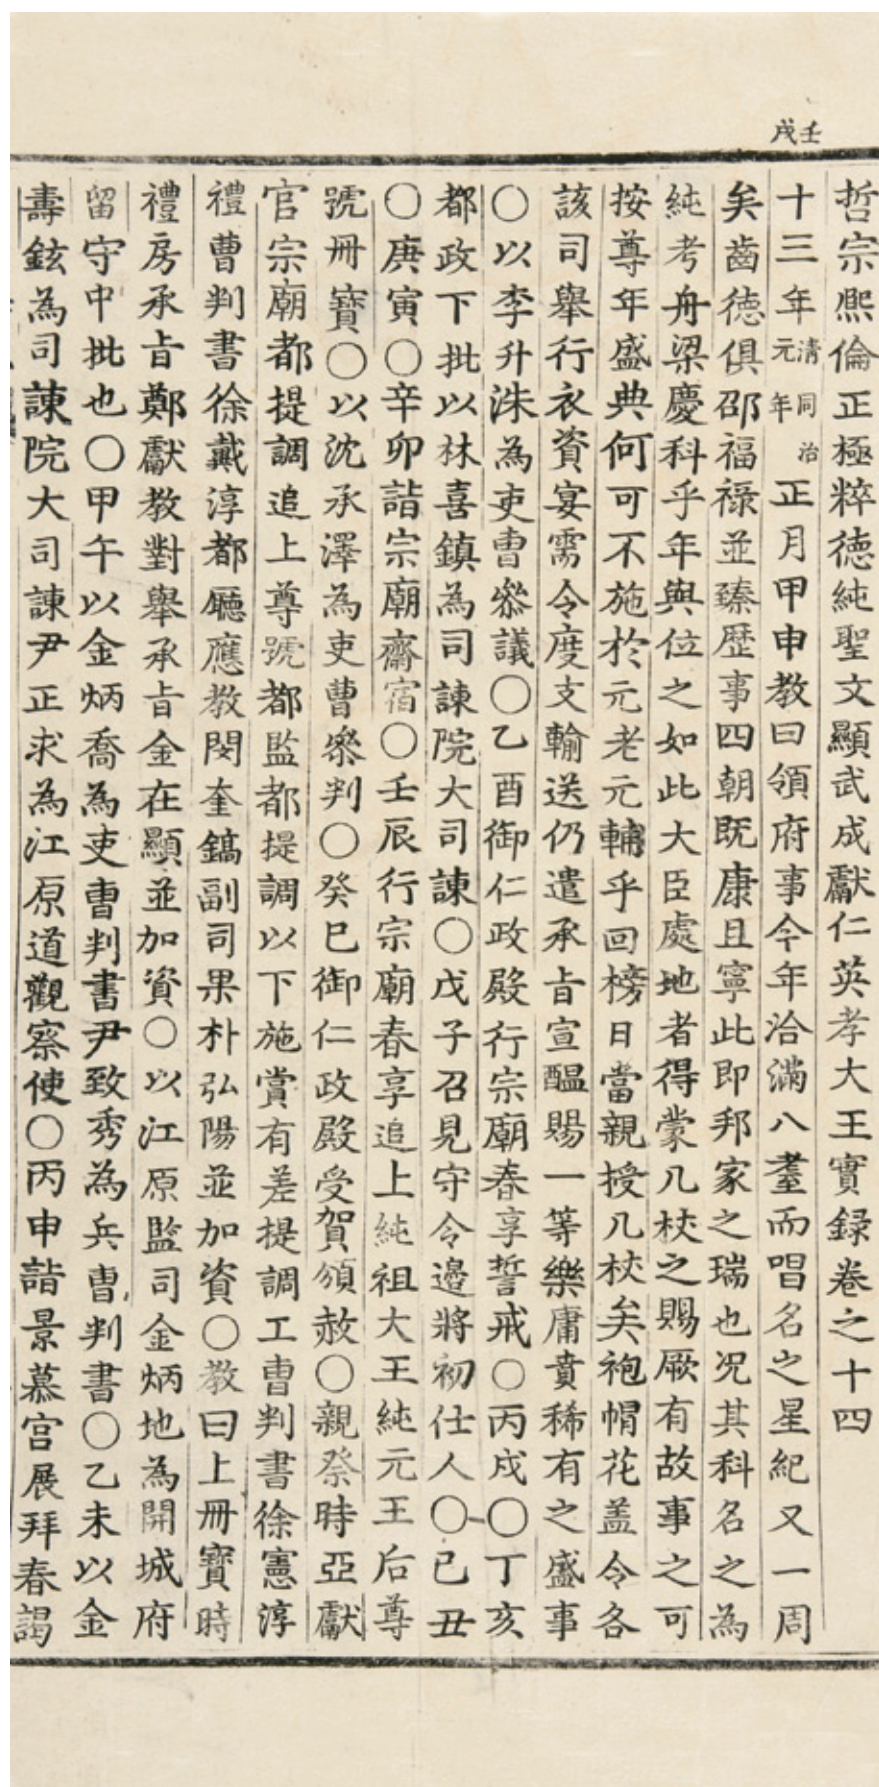 壬戌
哲宗熙倫正極粹德純聖文顯武成獻仁英孝大王實録卷之十四
十三年清同治元年正月甲申教曰領府事今年洽滿八耋而唱名之星紀又一周
矣齒德俱邵福祿並臻歷事四朝既康且寧此即邦家之瑞也况其科名之為
純考舟梁慶科乎年與位之如此大臣處地者得蒙几杖之賜厥有故事之可
按尊年盛典何可不施於元老元輔乎回榜日當親授几杖矣袍帽花盖令各
該司舉行衣資宴需令度支輸送仍遣承旨宣醞賜一等樂庸賁稀有之盛事
○以李升洙為吏曹叅議○乙酉御仁政殿行宗廟春享誓戒○丙戌○丁亥
都政下批以林喜鎮為司諫院大司諫○戊子召見守令邊將初仕人○己丑
○庚寅○辛卯詣宗廟齋宿○壬辰行宗廟春享追上純祖大王純元王后尊
號冊寶○以沈承澤為吏曹叅判○癸巳御仁政殿受賀頒赦○親祭時亞獻
官宗廟都提調追上尊號都監都提調以下施賞有差提調工曹判書徐憲淳
禮曹判書徐戴淳都廳應教閔奎鎬副司果朴弘陽並加資○教曰上冊寶時
禮房承旨鄭獻教對舉承旨金在顯並加資○以江原監司金炳地為開城府
留守中批也○甲午以金炳喬為吏曹判書尹致秀為兵曹判書○乙未以金
壽鉉為司諫院大司諫尹正求為江原道觀察使○丙申詣景慕宮展拜春謁